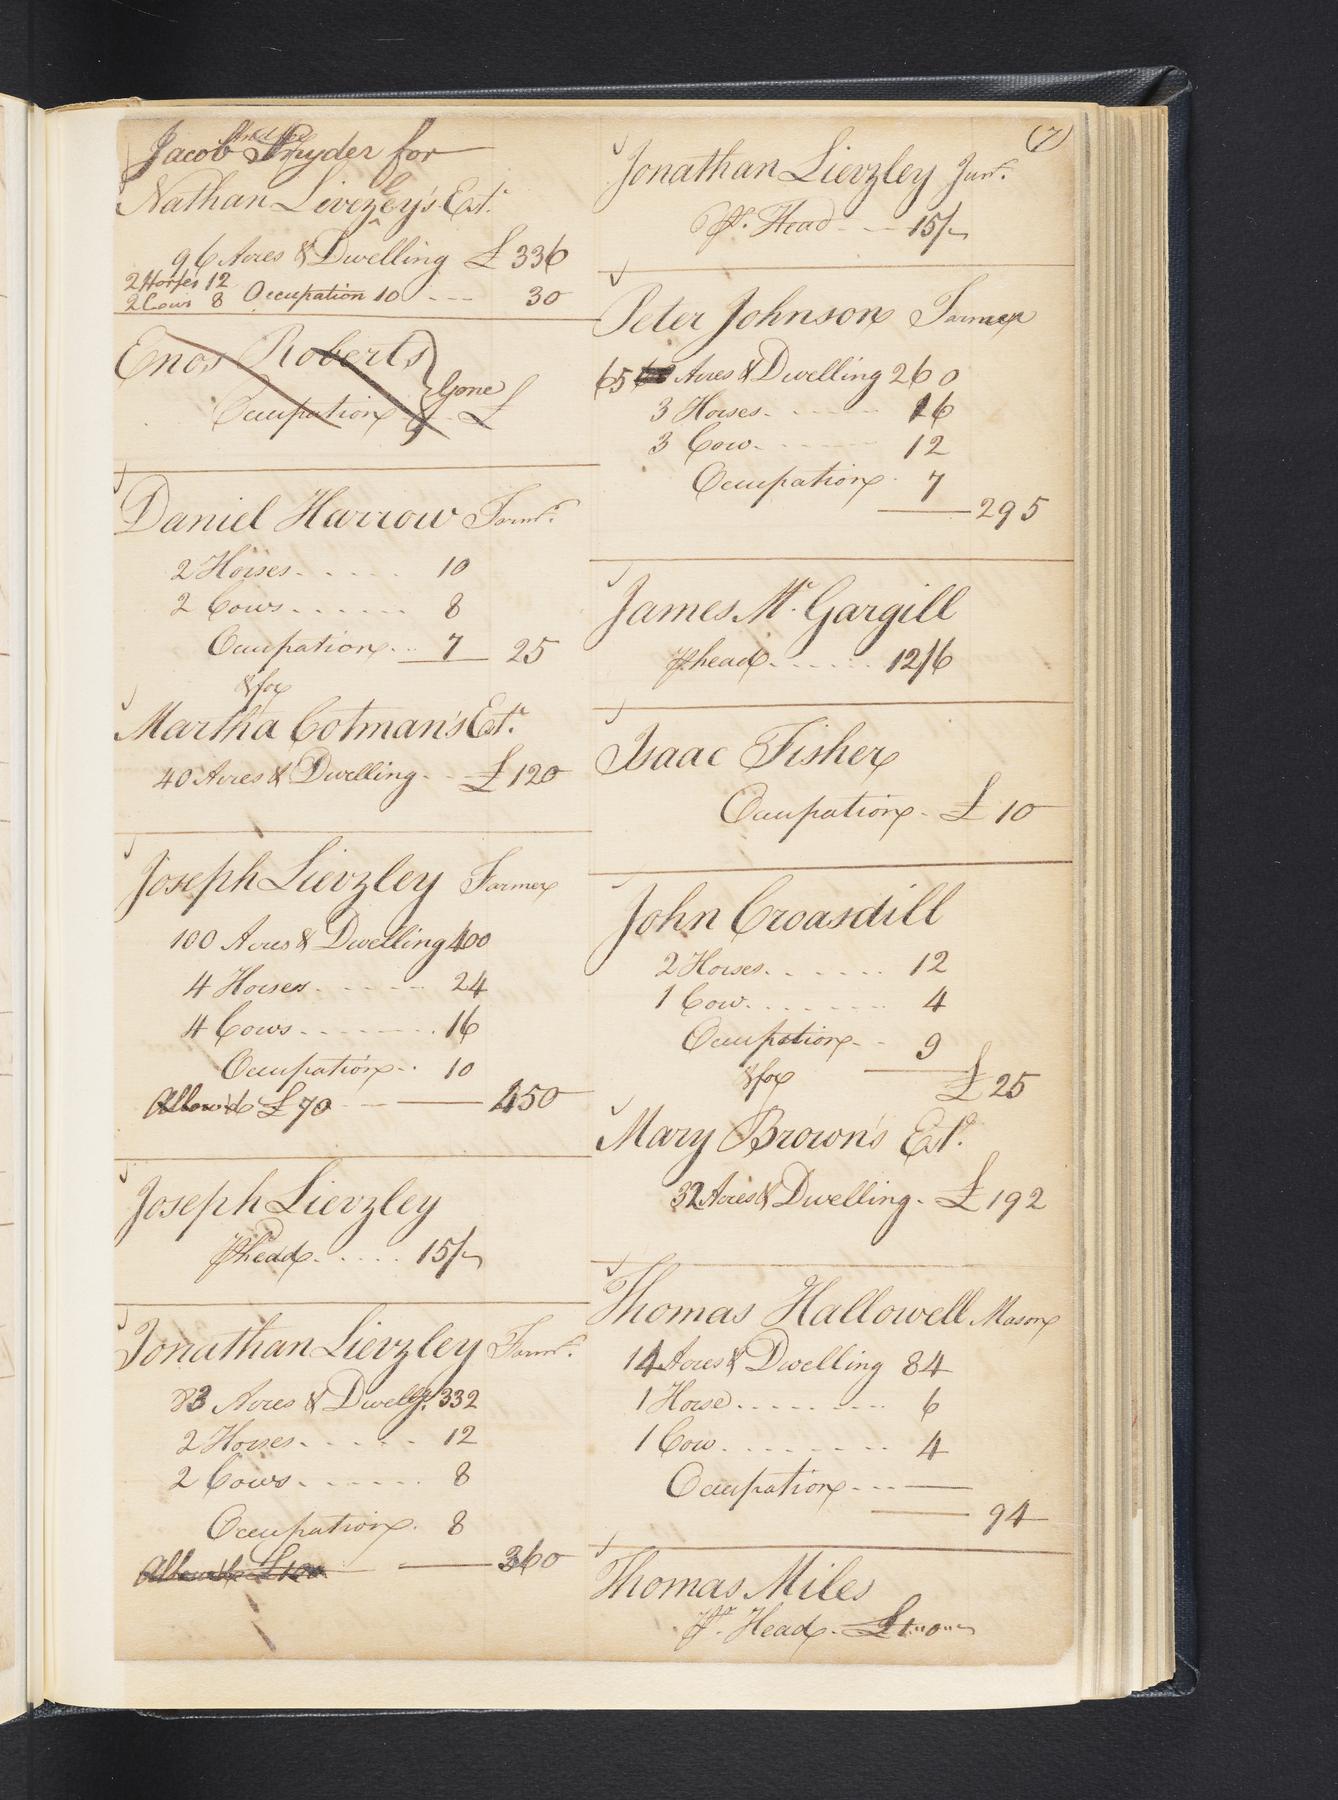 Jacob Snyder for
Nathan Livezey's Est.
96 Acres & Dwelling £ 336
2 Horses 12
2 Cows 8 Occupation 10 --- 30
Enos Roberts
Gone
Occupation £
Daniel Harrow Farmr.
2 Horses ..... 10
2 Cows ...... 8
Occupation .. 7 25
& for
Martha Cotman's Estr.
40 Acres & Dwelling - - £ 120
Joseph Lievzley Farmer
100 Acres & Dwelling 400
4 Horses ..... 24
4 Cows ....... 16
Occupation .. 10
Allow'd £ 70 450
Joseph Lievzley
P head ..... 15/
Jonathan Lievzley Farmr.
83 Acres & Dwellg. 332
2 Horses ..... 12
2 Cows ...... 8
Occupation . 8
Allow'd £ 100 360
(7)
Jonathan Lievzley Junr.
Pr. Head --- 15/
Peter Johnson Farmer
65 Acres & Dwelling 260
3 Horses ...... 16
3 Cow ...... 12
Occupation . 7
295
James Mc. Gargill
P head ...... 12/6
Isaac Fisher
Ocupation - £ 10
John Croasdill
2 Horses ...... 12
1 Cow ....... 4
Occupation - - 9
& for £ 25
Mary Brown's Estr.
32 Acres & Dwelling - £ 192
Thomas Hallowell Mason
14 Acres & Dwelling 84
1 Horse ........ 6
1 Cow ........ 4
Occupation ... —
94
Thomas Miles
Pr. Head - £ 1"0"